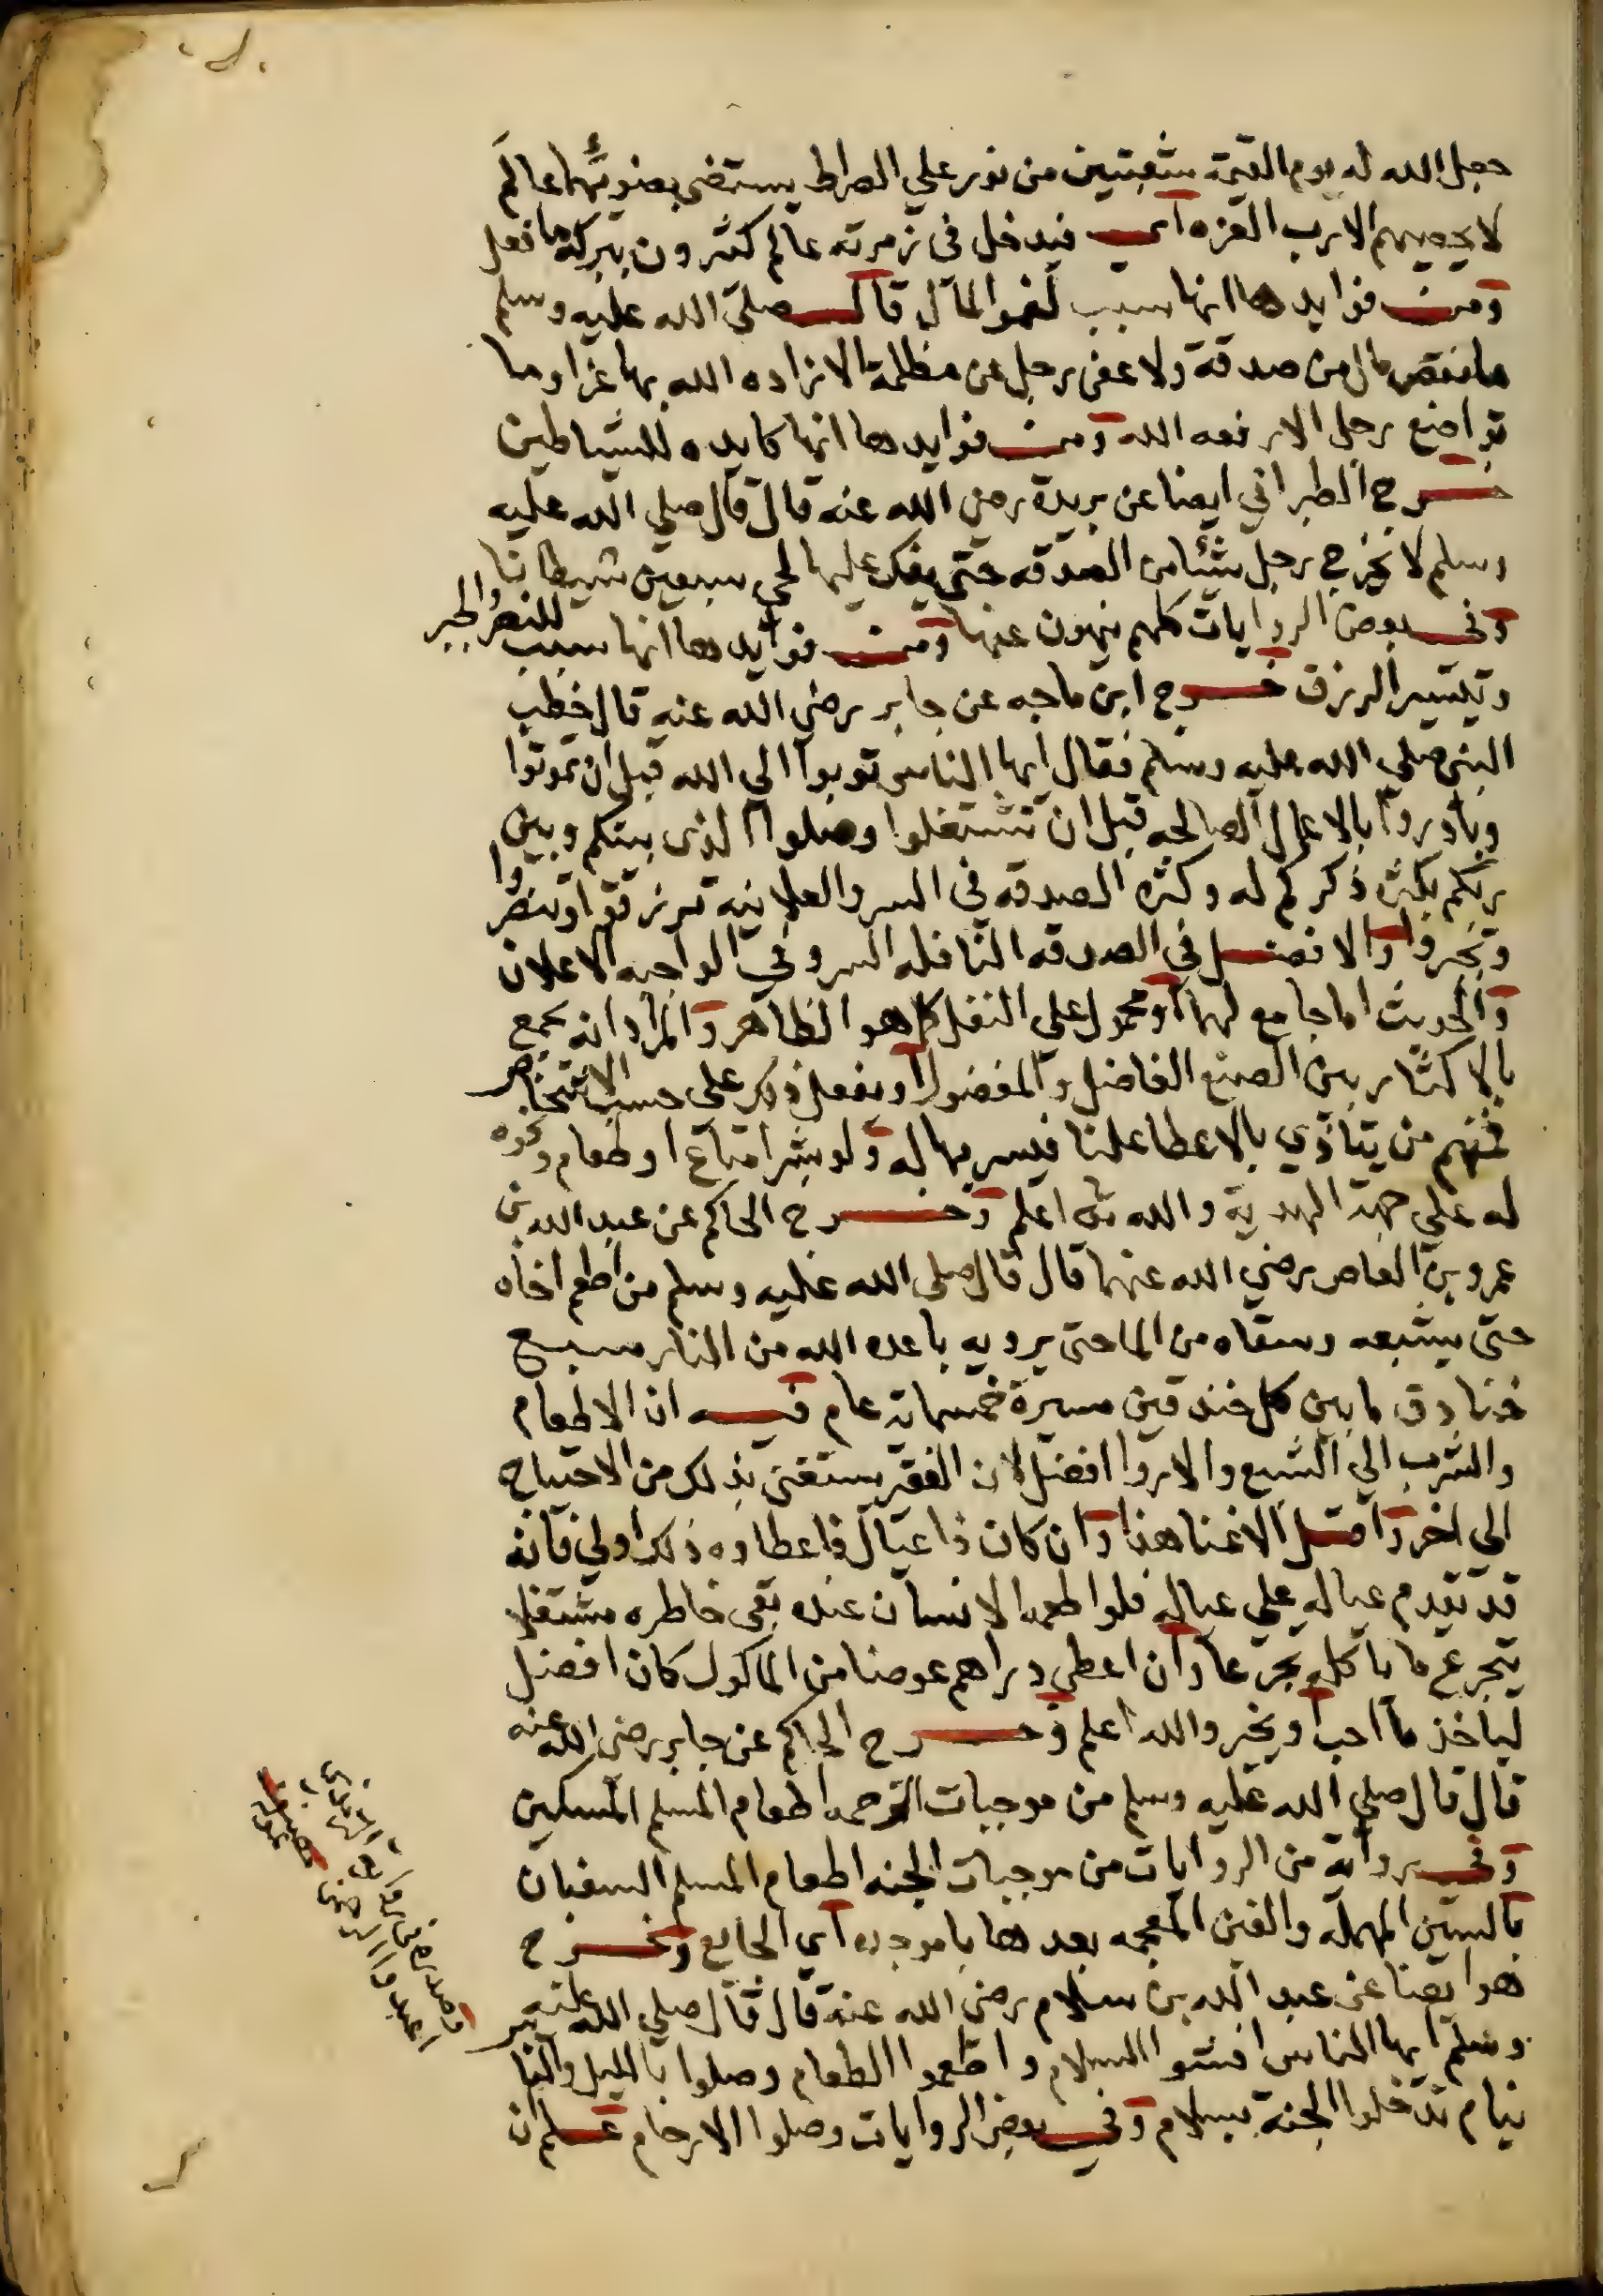 جعل الله له يوم القيمة شعبتين من نور علي الصراط يستضى بضوئهما عالم
لا يحصيهم الا رب العزه اي فيدخل في زمرته عالم كثيرون ببركة ما فعل
ومن فوايدها انها سبب لنمو المال قال صلي الله عليه وسلم
ما نقص مال من صدقة ولا عفى رجل عن مظلمة الا زاده الله بها عزا وما
تواضع رجل الا رفعه الله ومن فوايدها انها كايده للشياطين
خرج الطبراني ايضا عن بريدة رضي الله عنه قال قال صلي الله عليه
وسلم لا يخرج رجل شيئا من الصدقه حتي يفك عليها لحي سبعين شيطانا
وفي بعض الروايات كلهم ينهون عنها ومن فوايدها انها سبب للنصر والجبر
وتيسير الرزق خرج ابن ماجه عن جابر رضي الله عنه قال خطب
النبي صلي الله عليه وسلم فقال ايها الناس توبوا الي الله قبل ان تموتوا
وبادروا بالاعمال الصالحه قبل ان تشتغلوا وصلوا الذى بينكم وبين
ربكم بكثرة ذكركم له وكثرة الصدقه في السر والعلانيه ترزقوا وتنصروا
وتجبروا والافضل في الصدقه النافله السر وفي الواجبه الاعلان
والحديث اما جامع لهما او محمول على النفل كما هو الظاهر والمراد انه يجمع
بالاكثار بين الصنع الفاضل والمفضول او يفعل ذلك على حسب الاشخاص
فمنهم من يتاذي بالاعطا علنا فيسر بها له ولو بشرا متاع او طعام ونحوه
له علي جهة الهدية والله اعلم وخرج الحاكم عن عبد الله بن
عمرو بن العاص رضي الله عنهما قال قال صلى الله عليه وسلم من اطعم اخاه
حتى يشبعه وسقاه من الما حتى يرويه باعده الله من النار سبع
خنادق ما بين كل خندقين مسيرة خمسماية عام فيه ان الاطعام
والشرب الي الشبع والاروا افضل لان الفقير يستغنى بذلك من الاحتياج
الي اخر واقل الاغنا هذا وان كان ذا عيال فاعطاوه ذلك اولي فانه
قد يقدم عياله علي عياله فلو اطعمه الانسان عنده بقي خاطره مشتغلا
يتجرع ما ياكله تجرعا وان اعطي دراهم عوضا من الماكول كان افضل
لياخذ ما احب او يخير والله اعلم وخرج الحاكم عن جابر رضي الله عنه
قال قال صلي الله عليه وسلم من موجبات الرحمه اطعام المسلم المسكين
وفي رواية من الروايات من موجبات الجنه اطعام المسلم السغبان
بالسين المهمله والغين المعجمه بعدها با موحده اي الجايع وخرج
هو ايضا عن عبد الله بن سلام رضي الله عنه قال قال صلي الله عليه
وسلم ايها الناس افشوا السلام واطعموا الطعام وصلوا بالليل والناس
نيام تدخلوا الجنة بسلام وفي بعض الروايات وصلوا الارحام علم ان